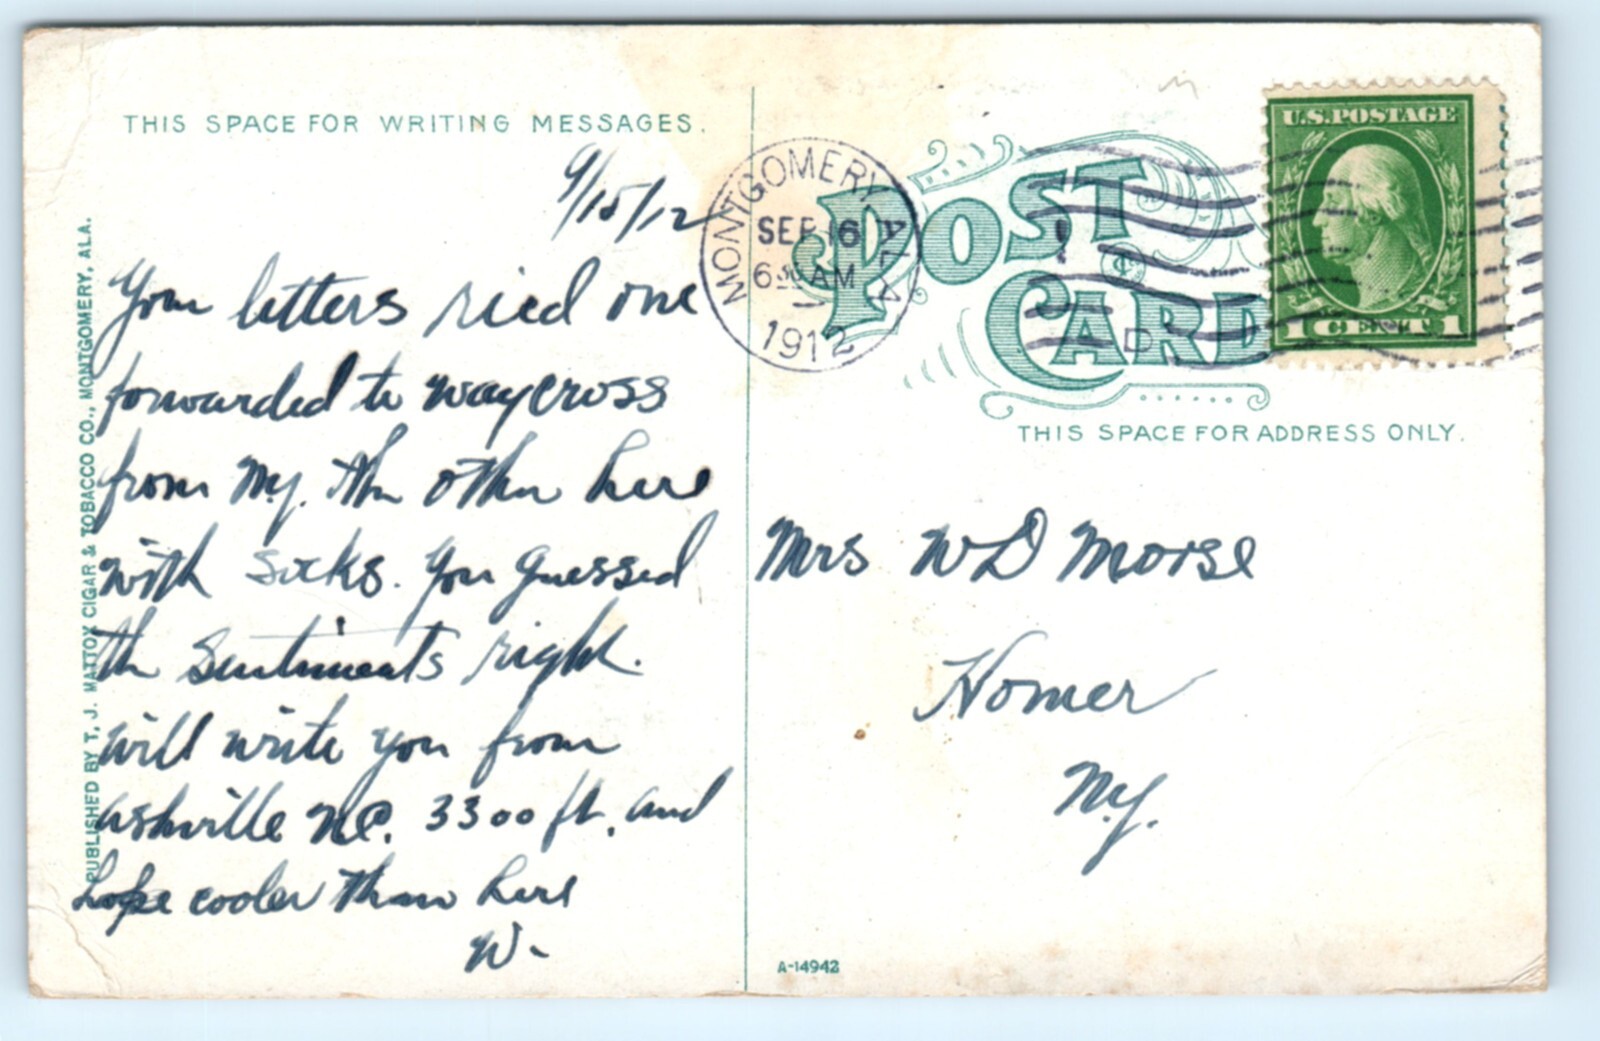 THIS SPACE FOR WRITING MESSAGES.
9/15/12
Your letters ricd one
forwarded to Waycross
from Ny. the other here
with socks. You guessed
the sentiments right.
Will write you from
Ashville NC. 3300 ft, and
hope cooler than here
W-
PUBLISHED BY T. J. MATTOX CIGAR & TOBACCO CO., MONTGOMERY, ALA.
MONTGOMERY ALA
SEP 16
630 AM
1912
POST CARD
U.S. POSTAGE
1 CENT 1
THIS SPACE FOR ADDRESS ONLY.
Mrs WD Morse
Homer
N.y.
A-14942